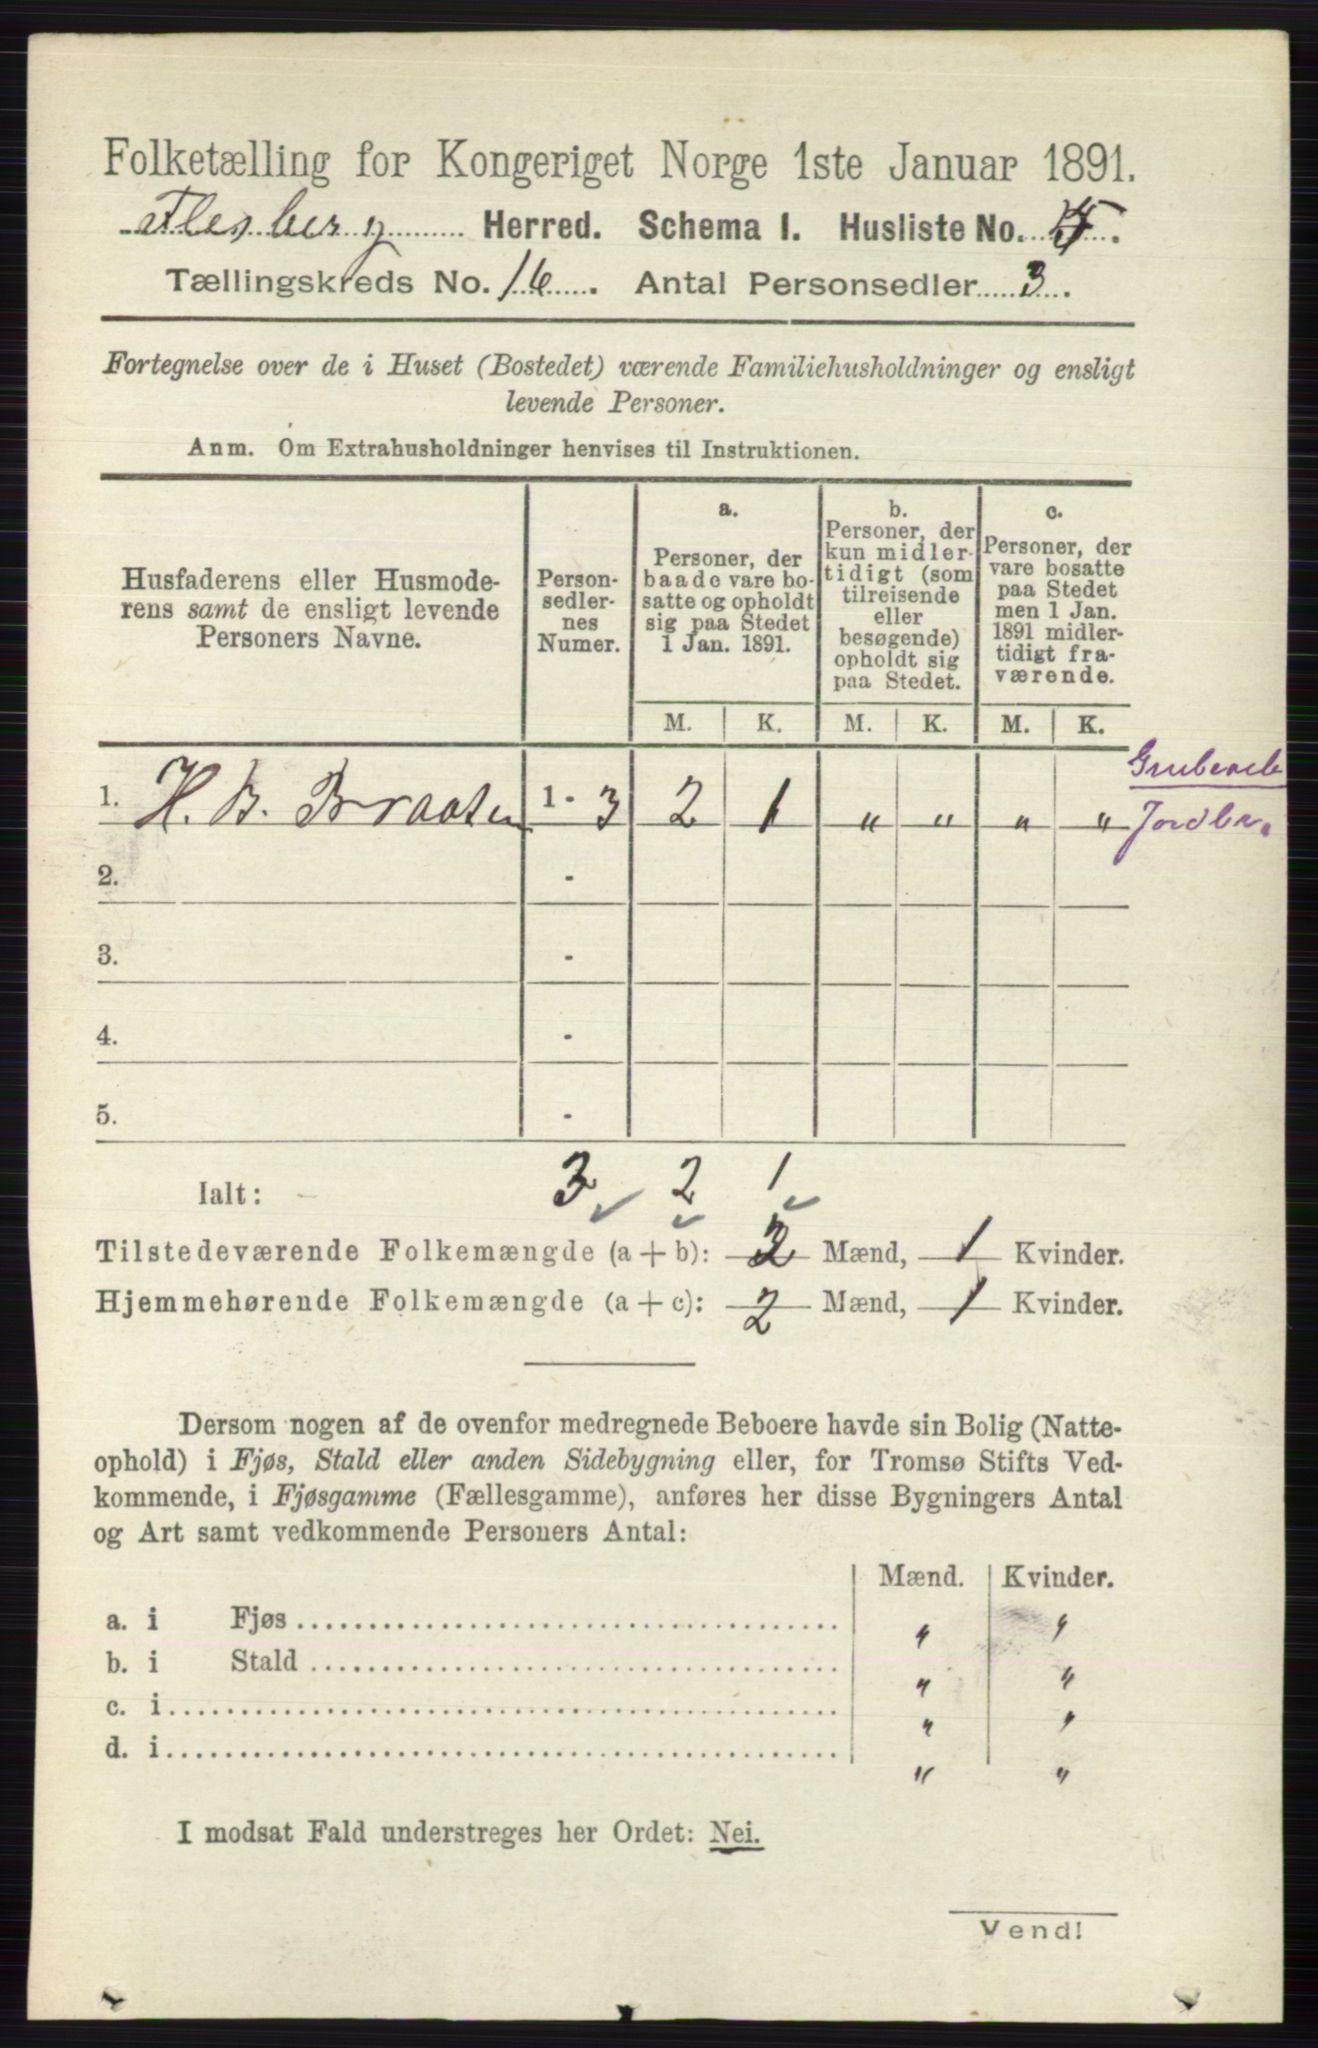 Folketælling for Kongeriget Norge 1ste Januar 1891.
Flesberg Herred. Schema I. Husliste No. 5.
Tællingskreds No. 16. Antal Personsedler 3.
Fortegnelse over de i Huset (Bostedet) værende Familiehusholdninger og ensligt
levende Personer.
Anm. Om Extrahusholdninger henvises til Instruktionen.
Husfaderens eller Husmode-
rens samt de ensligt levende
Personers Navne.
Person-
sedler-
nes
Numer.
a.
Personer, der
baade vare bo-
satte og opholdt
sig paa Stedet
1 Jan. 1891.
b.
Personer, der
kun midler-
tidigt (som
tilreisende
eller
besøgende)
opholdt sig
paa Stedet.
c.
Personer, der
vare bosatte
paa Stedet
men 1 Jan.
1891 midler-
tidigt fra-
værende.
M. K. M. K. M. K.
Grubearb
1. H. B. Braaten 1 - 3 2 1 " " " " Jordbr.
2. -
3. -
4. -
5. -
Ialt: 3 2 1
Tilstedeværende Folkemængde (a + b): 2 Mænd, 1 Kvinder.
Hjemmehørende Folkemængde (a + c): 2 Mænd, 1 Kvinder.
Dersom nogen af de ovenfor medregnede Beboere havde sin Bolig (Natte-
ophold) i Fjøs, Stald eller anden Sidebygning eller, for Tromsø Stifts Ved-
kommende, i Fjøsgamme (Fællesgamme), anføres her disse Bygningers Antal
og Art samt vedkommende Personers Antal:
Mænd. Kvinder.
a. i Fjøs " "
b. i Stald " "
c. i " "
d. i " "
I modsat Fald understreges her Ordet: Nei.
Vend!